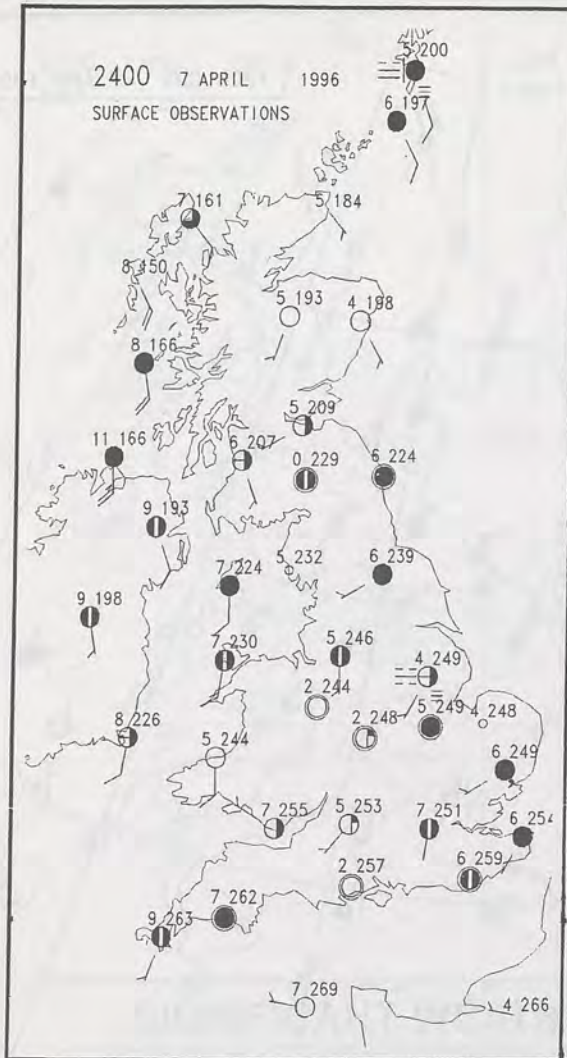 5 200
2400 7 APRIL 1996
6 197
SURFACE OBSERVATIONS
7 161
5 184
8 150
5 193
4 198
8 166
5 209
11 166
6 207
0 229
6 224
9 193
7 224
5 232
6 239
9 198
7 230
5 246
4 249
2 244
8 226
5 244
2 248
5 249
4 248
6 249
7 255
5 253
7 251
6 254
2 257
6 259
7 262
9 263
7 269
4 266